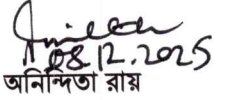 08.12.2025
অনিন্দিতা রায়